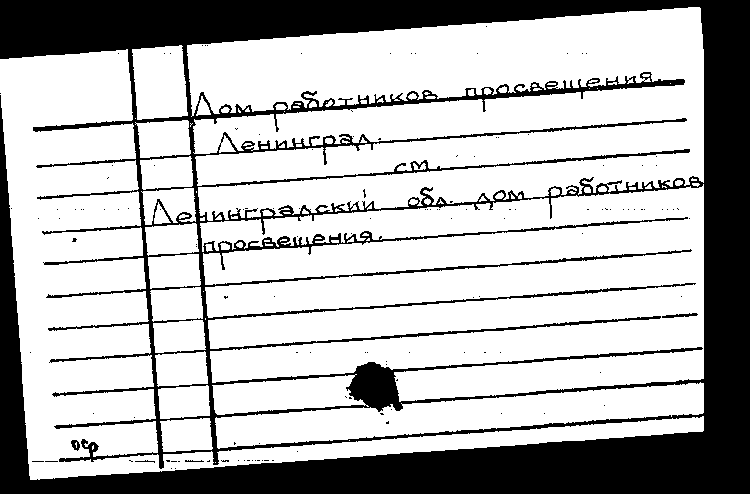 Дом работников просвещения.
Ленинград.
см.
Ленинградский обл. дом работников
просвещения.